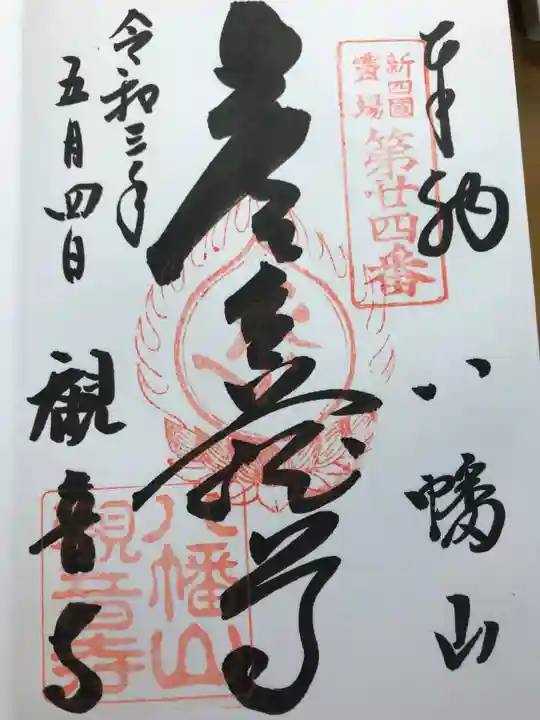 奉納
八幡山
新四國
靈場
第廿四番
虚空蔵尊
令和三年
五月四日
観音寺
八幡山
観音寺